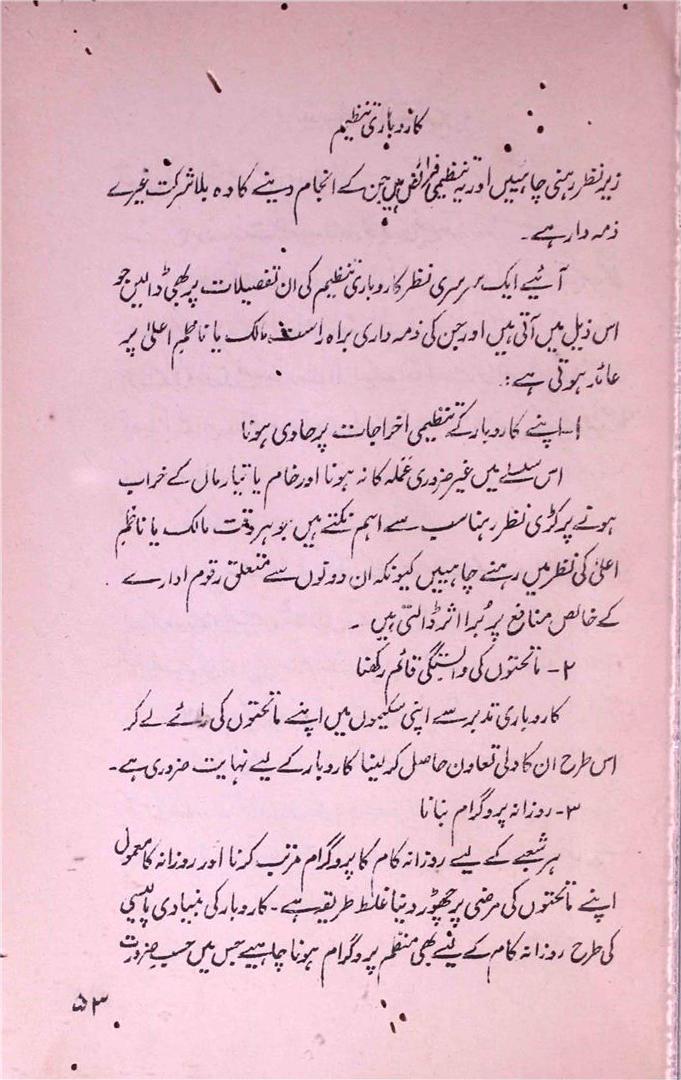 کاروباری تنظیم
زیر نظر رہنی چاہییں اور یہ تنظیمی فرائض ہیں جن کے انجام دینے کا وہ بلا شرکت غیرے
ذمہ دار ہے۔
آئیے ایک سرسری نظر کاروباری تنظیم کی ان تفصیلات پر بھی ڈالیں جو
اس ذیل میں آتی ہیں اور جن کی ذمہ داری براہ راست مالک یا ناظمِ اعلیٰ پر
عائد ہوتی ہے:۔
۱۔ اپنے کاروبار کے تنظیمی اخراجات پر حاوی ہونا
اس سلسلے میں غیر ضروری عملہ کا نہ ہونا اور خام یا تیار مال کے خراب
ہونے پر کڑی نظر رہنا سب سے اہم نکتے ہیں جو ہر وقت مالک یا ناظمِ
اعلیٰ کی نظر میں رہنے چاہییں کیونکہ ان دونوں سے متعلق رقوم ادارے
کے خالص منافع پر بُرا اثر ڈالتی ہیں ۔
۲۔ ماتحتوں کی وابستگی قائم رکھنا
کاروباری تدبر سے اپنی سکیموں میں اپنے ماتحتوں کی رائے لے کر
اس طرح ان کا دلی تعاون حاصل کر لینا کاروبار کے لیے نہایت ضروری ہے۔
۳۔ روزانہ پروگرام بنانا
ہر شعبے کے لیے روزانہ کام کا پروگرام مرتب کرنا اور روزانہ کا معمول
اپنے ماتحتوں کی مرضی پر چھوڑ دینا غلط طریقہ ہے۔ کاروبار کی بنیادی پالیسی
کی طرح روزانہ کام کے لیے بھی منظم پروگرام ہونا چاہیے جس میں حسبِ ضرورت
۵۳